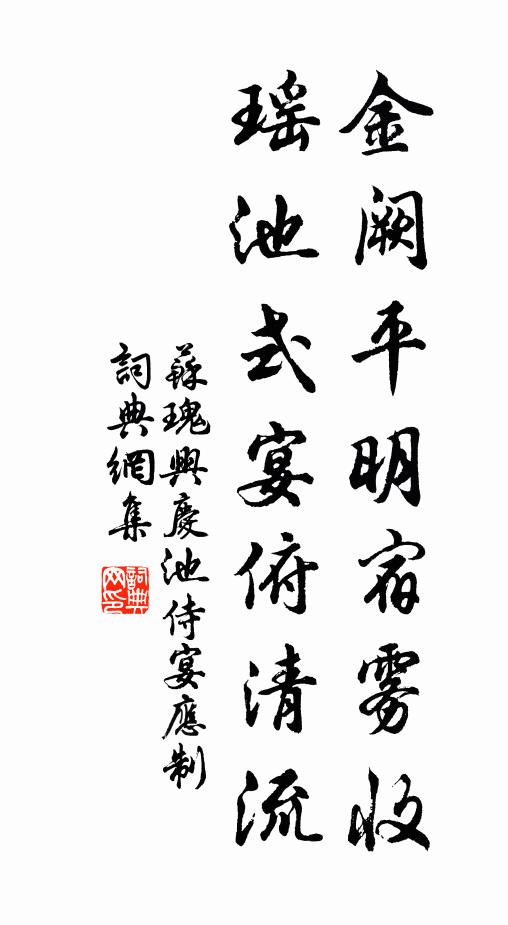 金阙平明宿雾收
瑶池式宴俯清流
蘇瑰興慶池侍宴應制
詞典網集
詞典網印